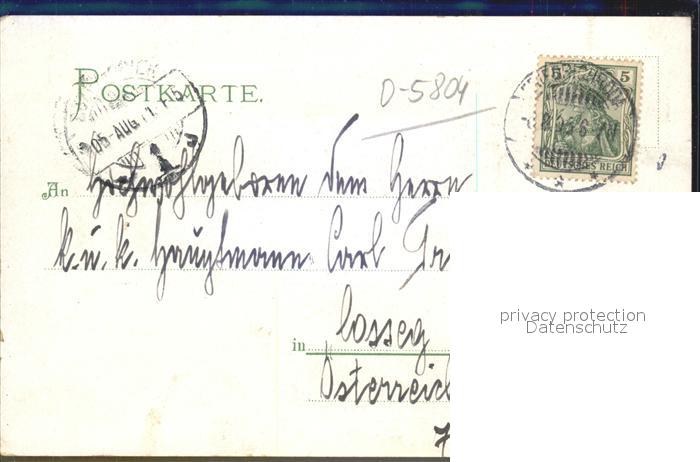 POSTKARTE.
D-5804
5
DEUTSCHES REICH
05-AUG
An Hochwohlgeboren dem Herrn
k. u. k. Hauptmann Carl
privacy protection
Datenschutz
in Losseg
Österreich